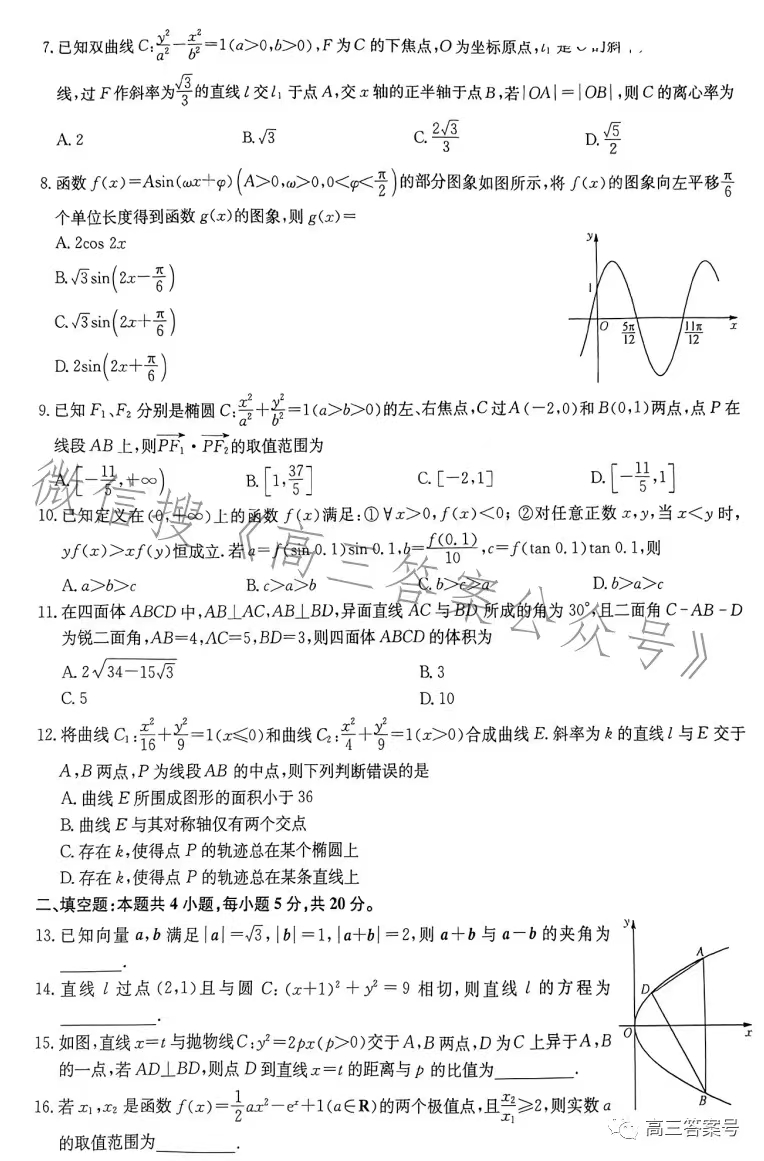 7.已知双曲线C:y²/a²-x²/b²=1(a>0,b>0),F为C的下焦点,O为坐标原点,l₁是C的斜
线,过F作斜率为√3/3的直线l交l₁于点A,交x轴的正半轴于点B,若|OA|=|OB|,则C的离心率为
A. 2 B. √3 C. 2√3/3 D. √5/2
8.函数f(x)=Asin(ωx+φ)(A>0,ω>0,0<φ<π/2)的部分图象如图所示,将f(x)的图象向左平移π/6
个单位长度得到函数g(x)的图象,则g(x)=
A. 2cos 2x
B. √3sin(2x-π/6)
C. √3sin(2x+π/6)
D. 2sin(2x+π/6)
y 1 O 5π/12 11π/12 x
9.已知F₁、F₂分别是椭圆C:x²/a²+y²/b²=1(a>b>0)的左、右焦点,C过A(-2,0)和B(0,1)两点,点P在
线段AB上,则PF₁·PF₂的取值范围为
A. [-11/5,+∞) B. [1,37/5] C. [-2,1] D. [-11/5,1]
10.已知定义在(0,+∞)上的函数f(x)满足:①∀x>0,f(x)<0;②对任意正数x,y,当x<y时,
yf(x)>xf(y)恒成立.若a=f(sin 0.1)sin 0.1,b=f(0.1)/10,c=f(tan 0.1)tan 0.1,则
A. a>b>c B. c>a>b C. b>c>a D. b>a>c
11.在四面体ABCD中,AB⊥AC,AB⊥BD,异面直线AC与BD所成的角为30°,且二面角C-AB-D
为锐二面角,AB=4,AC=5,BD=3,则四面体ABCD的体积为
A. 2√(34-15√3) B. 3
C. 5 D. 10
12.将曲线C₁:x²/16+y²/9=1(x≤0)和曲线C₂:x²/4+y²/9=1(x>0)合成曲线E.斜率为k的直线l与E交于
A,B两点,P为线段AB的中点,则下列判断错误的是
A. 曲线E所围成图形的面积小于36
B. 曲线E与其对称轴仅有两个交点
C. 存在k,使得点P的轨迹总在某个椭圆上
D. 存在k,使得点P的轨迹总在某条直线上
二、填空题:本题共4小题,每小题5分,共20分。
13.已知向量a,b满足|a|=√3,|b|=1,|a+b|=2,则a+b与a-b的夹角为
.
14.直线l过点(2,1)且与圆C:(x+1)²+y²=9相切,则直线l的方程为
.
15.如图,直线x=t与抛物线C:y²=2px(p>0)交于A,B两点,D为C上异于A,B
的一点,若AD⊥BD,则点D到直线x=t的距离与p的比值为 .
y A D O x B
16.若x₁,x₂是函数f(x)=1/2ax²-eˣ+1(a∈R)的两个极值点,且x₂/x₁≥2,则实数a
的取值范围为 .
微信搜《高三答案公众号》
高三答案号